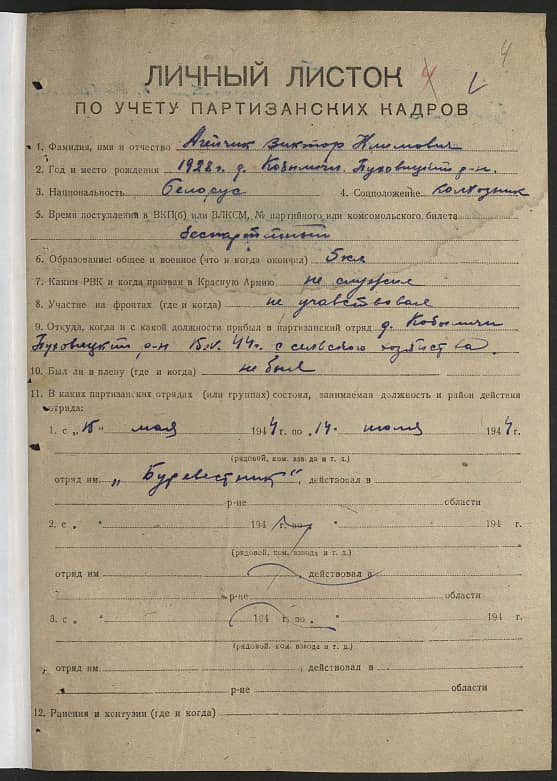 4
4
ЛИЧНЫЙ ЛИСТОК
ПО УЧЕТУ ПАРТИЗАНСКИХ КАДРОВ
1. Фамилия, имя и отчество Агейчик Виктор Климович
2. Год и место рождения 1928 г. д. Кобыличи Пуховицкий р-н.
3. Национальность белорус 4. Соцположение колхозник
5. Время поступления в ВКП(б) или ВЛКСМ, № партийного или комсомольского билета
беспартийный
6. Образование: общее и военное (что и когда окончил) 5 кл
7. Каким РВК и когда призван в Красную Армию не служил
8. Участие на фронтах (где и когда) не учавствовал
9. Откуда, когда и с какой должности прибыл в партизанский отряд д. Кобыличи
Пуховицкий р-н 15.V.44г. с сельского хозяйства.
10. Был ли в плену (где и когда) не был
11. В каких партизанских отрядах (или группах) состоял, занимаемая должность и район действия
отряда:
1. с „15" мая 1944 г. по „14" июля 1944 г.
(рядовой, ком. взвода и т. д.)
отряд им. „Буревестник", действовал в
р-не области
2. с „ " 194 г. по " 194 г.
(рядовой, ком. взвода и т. д.)
отряд им , действовал в
р-не области
3. с „ " 194 г. по „ " 194 г.
(рядовой, ком. взвода и т. д.)
отряд им. , действовал в
р-не области
12. Ранения и контузии (где и когда)